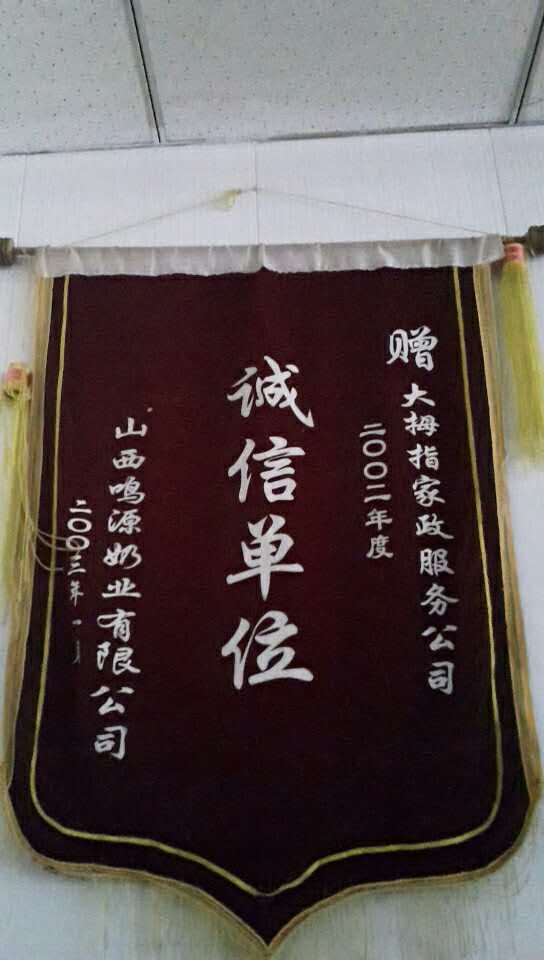 赠大拇指家政服务公司
二〇〇二年度
诚信单位
山西鸣源奶业有限公司
二〇〇三年一月